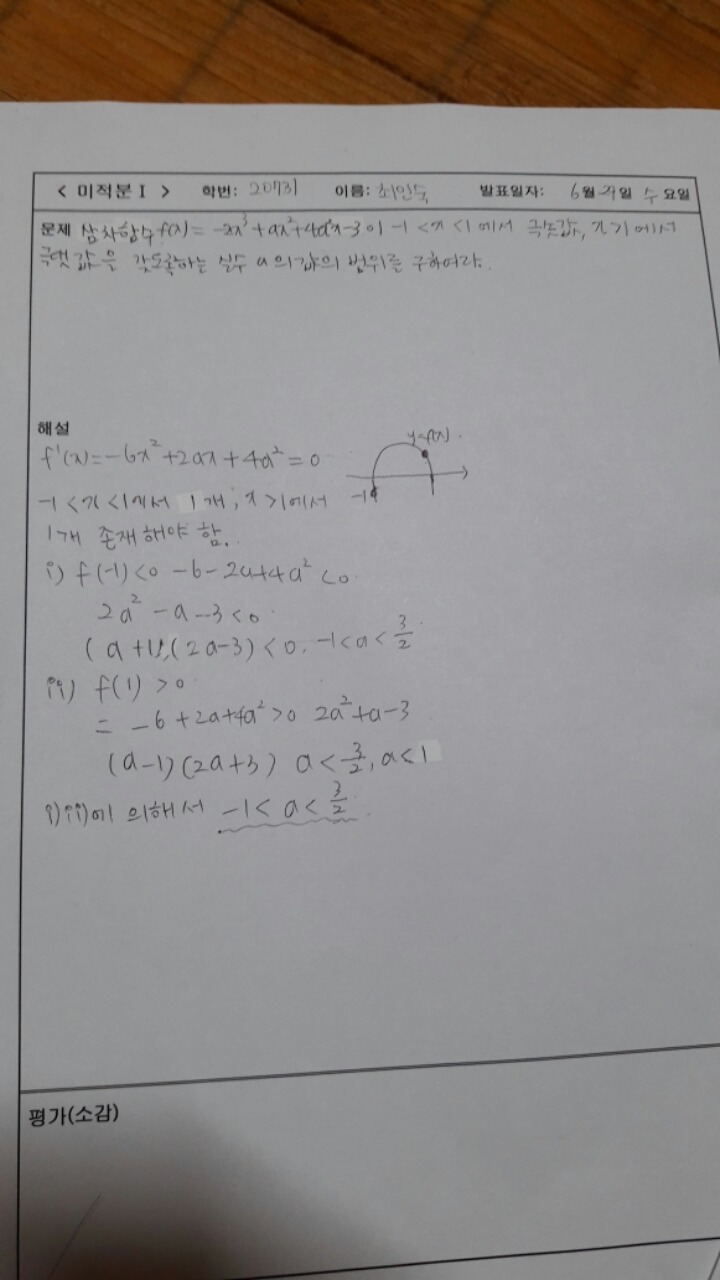 < 미적분 I > 학번: 20731 이름: 발표일자: 6월 29일 수 요일
문제 삼차함수 f(x) = -2x³+ax²+4a²x-3이 -1<x<1에서 극솟값, x>1에서
극댓값을 갖도록하는 실수 a의 값의 범위를 구하여라.
해설
f'(x)=-6x²+2ax+4a²=0
y=f'(x)
-1
1
-1<x<1에서 1개, x>1에서
1개 존재해야 함.
i) f(-1)<0 -6-2a+4a²<0
2a²-a-3<0
(a+1)(2a-3)<0, -1<a<3/2
ii) f(1)>0
= -6+2a+4a²>0 2a²+a-3
(a-1)(2a+3) a<3/2, a<1
i)ii)에 의해서 -1<a<3/2
평가(소감)